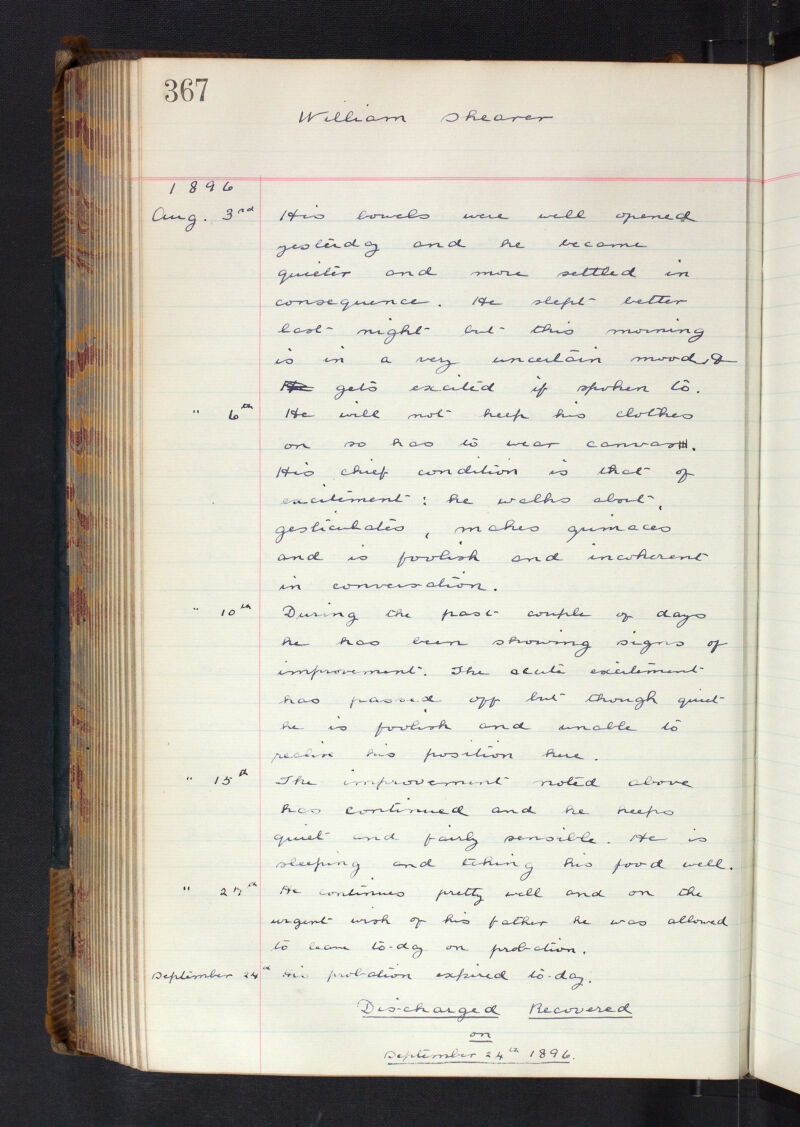 367
William Shearer
1896
Aug. 3rd His bowels were well opened
yesterday and he became
quieter and more settled in
consequence. He slept better
last night but this morning
is in a very uncertain mood, &
He gets excited if spoken to.
" 6th He will not keep his clothes
on so has to wear canvas.
His chief condition is that of
excitement: he walks about,
gesticulates, makes grimaces
and is foolish and incoherent
in conversation.
" 10th During the past couple of days
he has been showing signs of
improvement. The acute excitement
has passed off but though quiet
he is foolish and unable to
realise his position here.
" 15th The improvement noted above
has continued and he keeps
quiet and fairly sensible. He is
sleeping and taking his food well.
" He continues pretty well and on the
urgent wish of his father he was allowed
to leave to-day on probation.
September 24th His probation expired to-day.
Discharged Recovered
on
September 24th 1896.